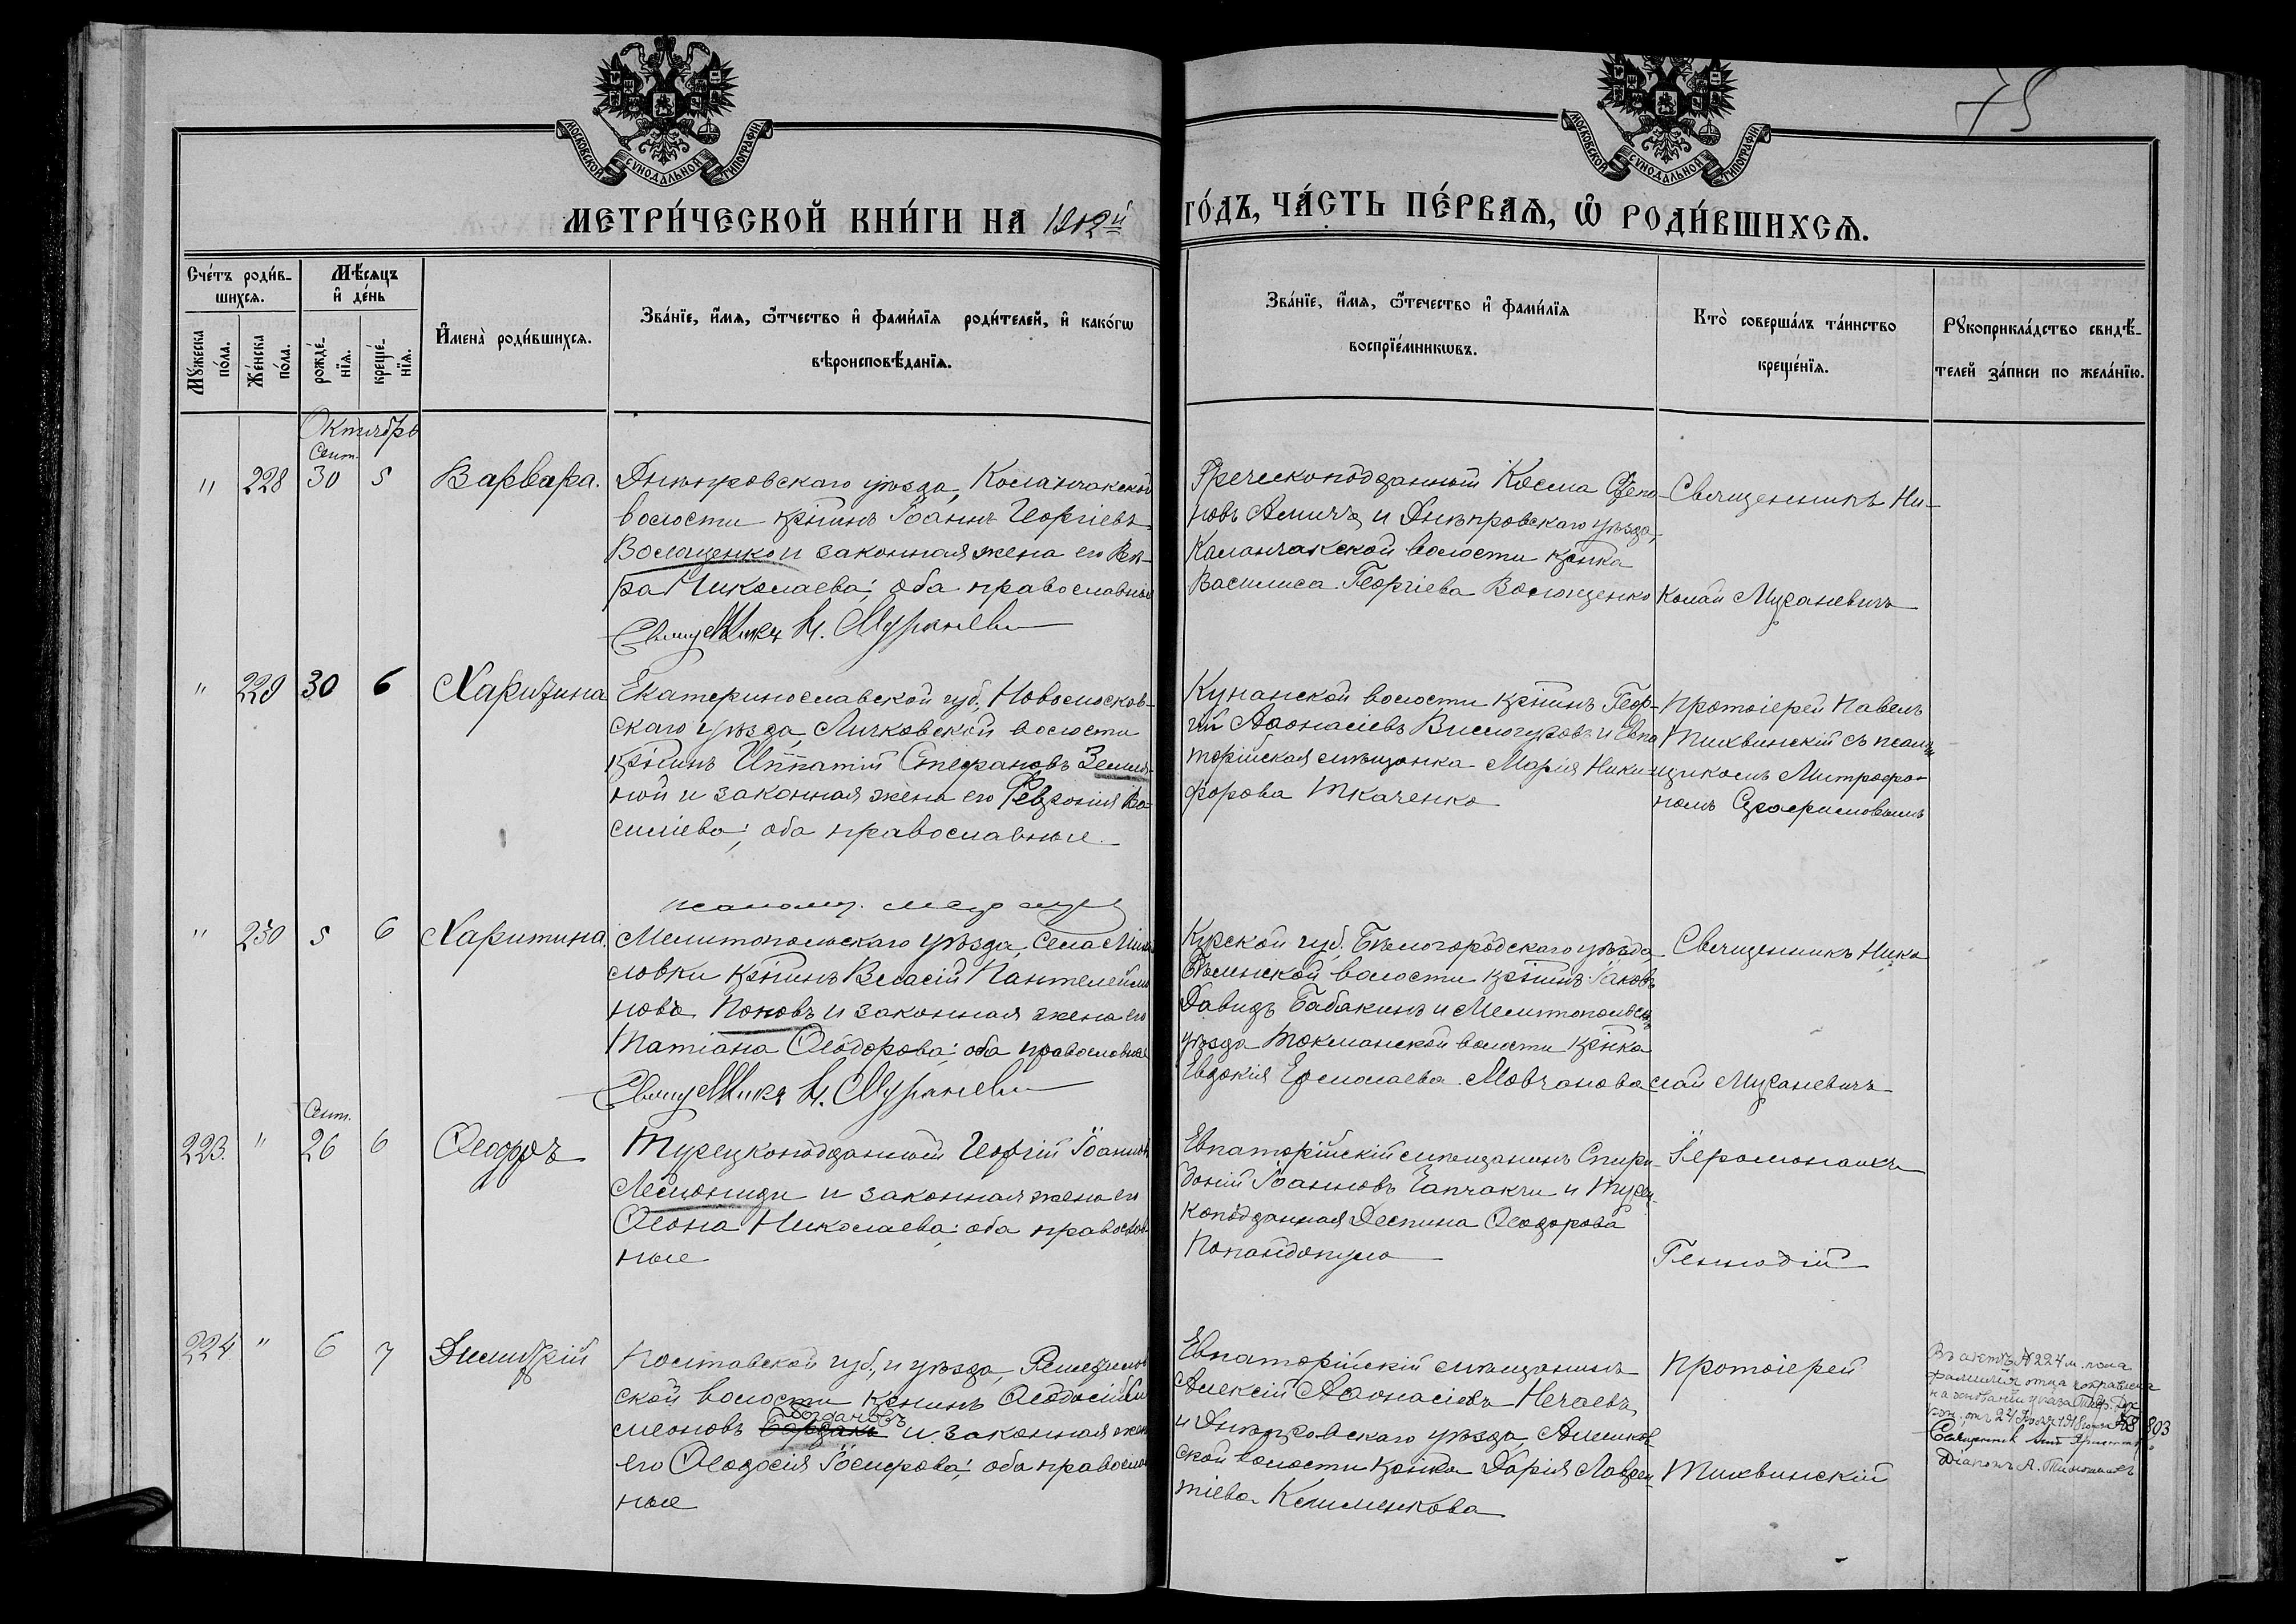 75
МОСКОВСКОЙ СѴНОДАЛЬНОЙ ТИПОГРАФІИ
МОСКОВСКОЙ СѴНОДАЛЬНОЙ ТИПОГРАФІИ
МЕТРИ́ЧЕСКОЙ КНИ́ГИ НА 1912й
ГО́ДЪ, ЧА́СТЬ ПЕ́РВАѦ, Ѡ РОДИ́ВШИХСѦ.
Сче́тъ роди́в-
шихсѧ.
Мꙋ́жеска
по́ла.
Же́нска
по́ла.
Мѣ́сѧцъ
и҆ де́нь
рожде́-
нїѧ.
креще́-
нїѧ.
И҆мена̀ роди́вшихсѧ.
Зва́нїе, и҆́мѧ, ѻ҆́тчество и҆ фами́лїѧ роди́телей, и҆ како́гѡ
вѣроисповѣ́данїѧ.
Зва́нїе, и҆́мѧ, ѻ҆́течество и҆ фами́лїѧ
воспрїе́мникѡвъ.
Кто̀ соверша́лъ та́инство
креще́нїѧ.
Рꙋкоприкла́дство свидѣ́-
телей за́писи по жела́нїю.
Октябрь
Сент.
" 228 30 5 Варвара.
Днѣпровскаго уѣзда, Каланчакской
волости кр̃нинъ Іоаннъ Георгіевъ
Волощенко и законная жена его Вѣ-
ра Николаева; оба православные
Священникъ Н.
Греческоподданный Косма
и Днѣпровскаго уѣзда,
Каланчакской волости кр̃нка
Василиса Георгіева Волощенко
Священникъ Ни-
колай
" 229 30 6 Харитина
Екатеринославской губ., Новомосков-
скаго уѣзда, Личковской волости
кр̃нинъ Ипатій Стефановъ Земля-
ной и законная жена его Февронія Ва-
силіева; оба православные.
Кунанской волости кр̃нинъ Геор-
гій Аѳонасіевъ и Евпа-
торійская мѣщанка Марія Ники-
форова Ткаченко
Протоіерей Павелъ
Тихвинскій съ псалом-
щикомъ Митрофа-
номъ
" 230 5 6 Харитина.
Мелитопольскаго уѣзда, села
словки кр̃нинъ Власій Пантелеймо
новъ Поповъ и законная жена его
Татіана Ѳеодорова; оба православные
Священникъ Н.
Курской губ., Бѣлогородскаго уѣзда,
волости кр̃нинъ Іаковъ
Давидъ Бабакинъ и Мелитопольск.
уѣзда Токмакской волости кр̃нка
Евдокія Ермолаева Мовчанова
Священникъ Нико
лай
Сент.
223. " 26 6 Ѳеодоръ
Турецкоподданный Георгій Іоанновъ
Леониди и законная жена его
Николаева; оба православ
ные
Евпаторійскій мѣщанинъ Спири-
доній Іоанновъ Капчакчи и Турец-
коподданная Деспина Ѳеодорова
Попандопуло
Іеромонахъ
Геннадій
224 " 6 7 Димитрій
Полтавской губ., и уѣзда,
ской волости кр̃нинъ Ѳеодосій Си
меоновъ Богдановъ и законная жена
его Ѳеодосія Іосифова; оба православ
ные
Евпаторійскій мѣщанинъ
Алексій Аѳонасіевъ Нечаевъ,
и Днѣпровскаго уѣзда, Алешков-
ской волости кр̃нка Дарія Лаврен-
тіева Клименкова
Протоіерей
Тихвинскій
Въ актѣ № 224 м. пола
фамилія отца исправлена
на основаніи указа Тавр. Дух.
Кон. отъ 24 1918 года № 8803
Священникъ
Діаконъ А.